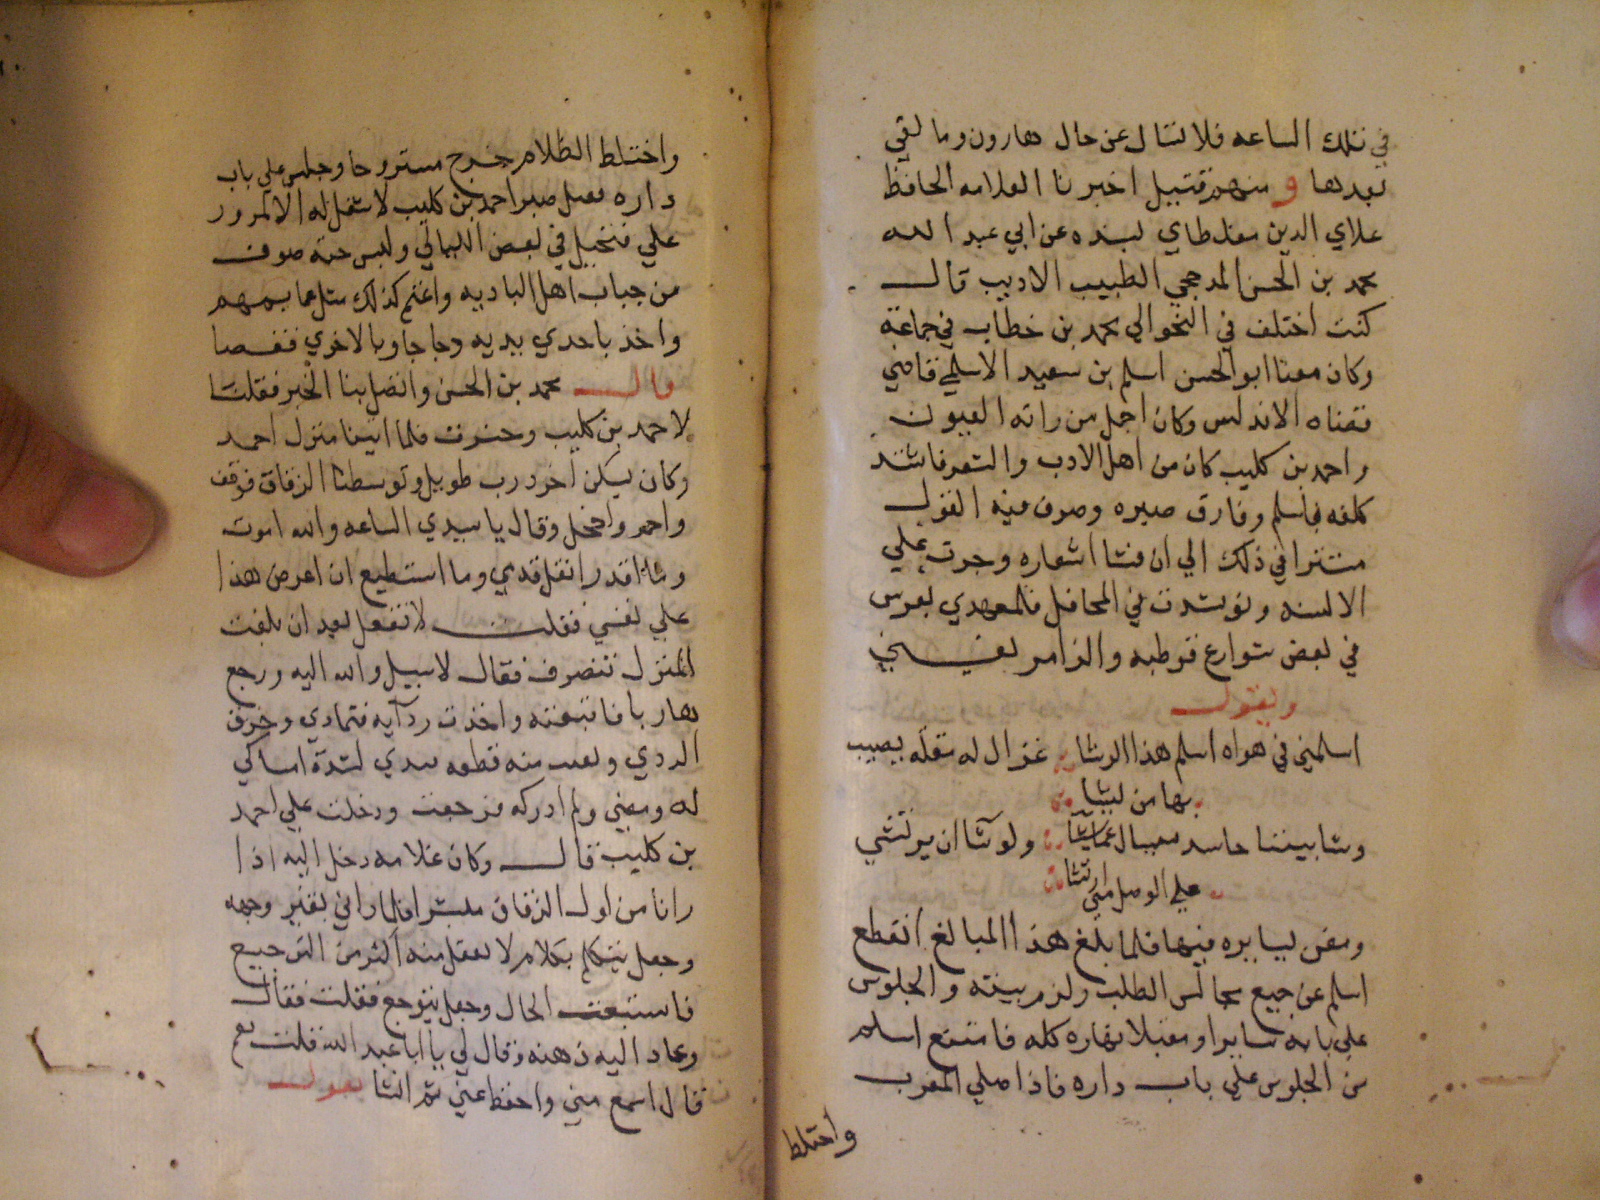 في تلك الساعه فلا تسال عن حال هارون وما لقي
بعدها و منهم قتيل اخبرنا العلامه الحافظ
علاي الدين مغلطاي بسنده عن ابي عبد الله
محمد بن الحسن المدحجي الطبيب الاديب قال
كنت اختلف في النحو الي محمد بن خطاب في جماعة
وكان معنا ابو الحسن اسلم بن سعيد الاسلمي قاضي
قضاه الاندلس وكان اجمل من راته العيون
واحمد بن كليب كان من اهل الادب والشعر فاشتد
كلفه باسلم وفارق صبره وصرف فيه القول
مستترا في ذلك الي ان فشا اشعاره وجرت علي
الالسنه وتوشدت في المحافل فلعهدي بعرس
في بعض شوارع قرطبه والزامر يغني
ويقول
اسلمني في هواه اسلم هذا الرشا غزال له مقله يصيب
بها من يشا
وشا بيننا حاسد سيسال عما وشا ولو شا ان يرتشي
علي الوصل مني ارتشا
ومغن يسايره فيها فلما بلغ هذا المبالغ انقطع
اسلم عن جميع مجالس الطلب ولزم بيته والجلوس
علي بابه سايرا ومقبلا نهاره كله فامتنع اسلم
من الجلوس علي باب داره فاذا صلي المغرب
واختلط
واختلط الظلام خرج مستروحا وجلس علي باب
داره فعيل صبر احمد بن كليب لا شغل له الا المرور
علي فتخيل في بعض الليالي ولبس جبة صوف
من جباب اهل الباديه واعتم كذلك مثل عمايمهم
واخذ باحدي يديه دجاجا وبالاخري قفصا
قال محمد بن الحسن واتصل بنا الخبر فقلت
لاحمد بن كليب وحضرت فلما اتينا منزل احمد
وكان يسكن اخر درب طويل وتوسطنا الزقاق فوقف
واحمر وخجل وقال يا سيدي الساعه والله اموت
وما اقدر انقل قدمي وما استطيع ان اعرض هذا
علي نفسي فقلت لا تفعل بعد ان بلغت
المنزل تنصرف فقال لا سبيل والله اليه ورجع
هاربا فاتبعته واخذت ردآيه فتمادي وخرق
الردي وبقيت منه قطعه بيدي لشدة امساكي
له ومضي ولم ادركه فرجعت ودخلت علي احمد
بن كليب قال وكان غلامه دخل اليه اذا
رانا من اول الزقاق مبشرا فلما راني تغير وجهه
وجعل يتكلم بكلام لا يعقل منه اكثر من الترجيع
فاستبشعت الحال وجعل يتوجع فقلت فقال
وعاد اليه ذهنه وقال لي يا ابا عبد الله قلت نعم
قال اسمع مني واحفظ عني ثم انشا يقول